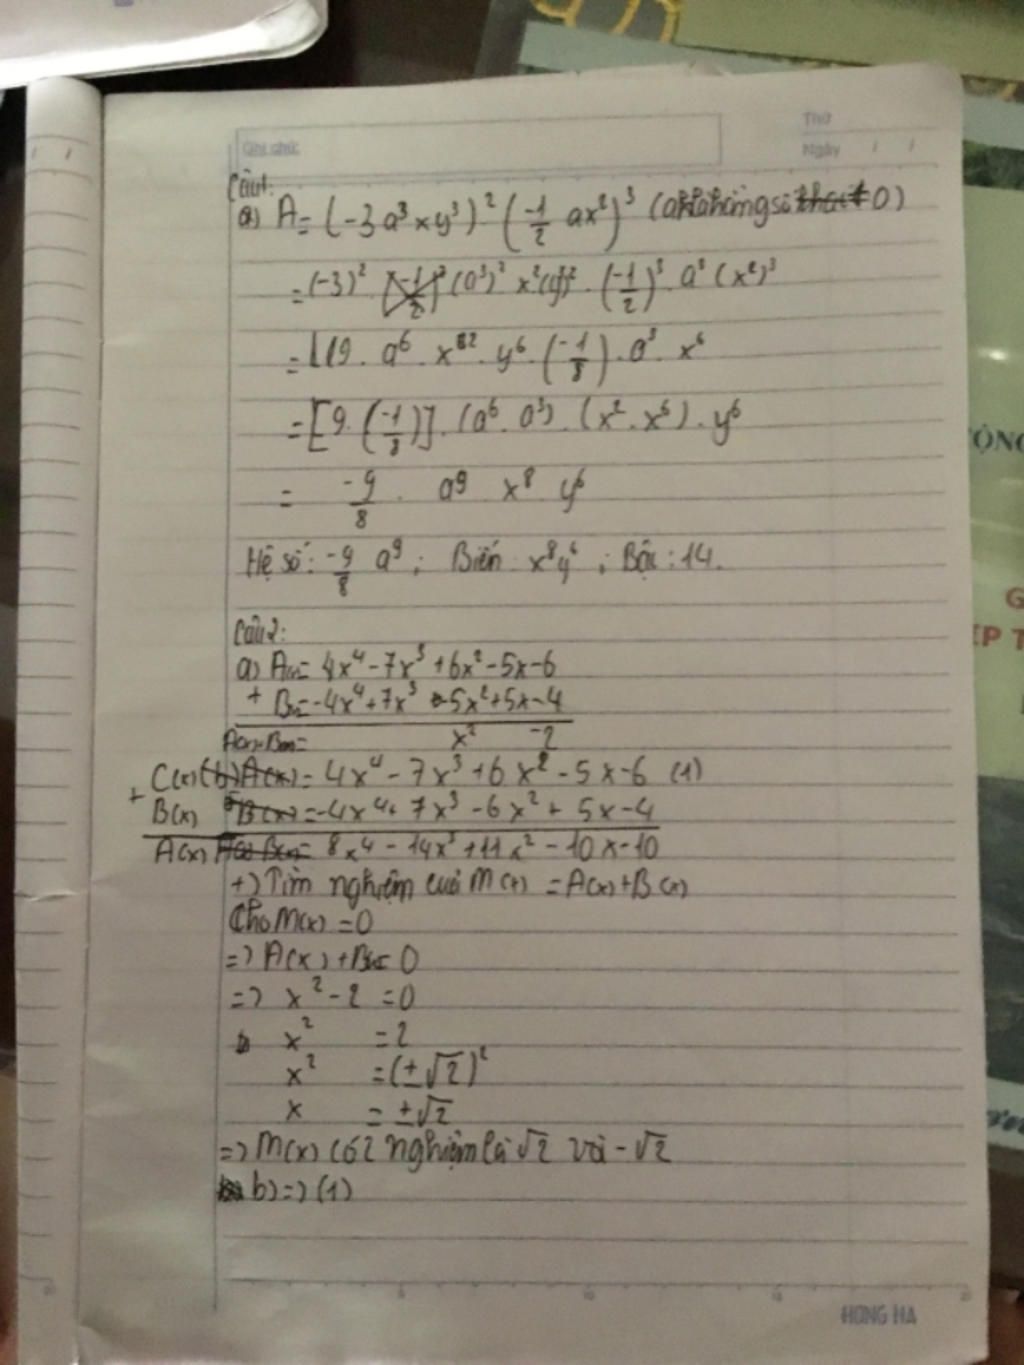 Ghi chú:
Thứ
Ngày / /
Câu 1:
a) A = (-3a³xy³)² (-1/2 ax²)³ (a là hằng số khác 0)
= (-3)² . (a³)² x² (y³)² . (-1/2)³ . a³ (x²)³
= 9 . a⁶ . x² . y⁶ . (-1/8) . a³ . x⁶
= [9 . (-1/8)] . (a⁶ . a³) . (x² . x⁶) . y⁶
= -9/8 . a⁹ x⁸ y⁶
Hệ số: -9/8 a⁹ ; Biến x⁸y⁶ ; Bậc : 14.
Câu 2:
a) A(x) = 4x⁴ - 7x³ + 6x² - 5x - 6
+ B(x) = -4x⁴ + 7x³ - 5x² + 5x - 4
A(x)+B(x) = x² -2
C(x) (b) A(x) = 4x⁴ - 7x³ + 6x² - 5x - 6 (1)
+ B(x) B(x) = -4x⁴ + 7x³ - 6x² + 5x - 4
A(x) A(x) - B(x) = 8x⁴ - 14x³ + 11x² - 10x - 10
+) Tìm nghiệm của M(x) = A(x) + B(x)
Cho M(x) = 0
=> A(x) + B(x) = 0
=> x² - 2 = 0
x² = 2
x² = (±√2)²
x = ±√2
=> M(x) có 2 nghiệm là √2 và -√2
b) => (1)
HONG HA